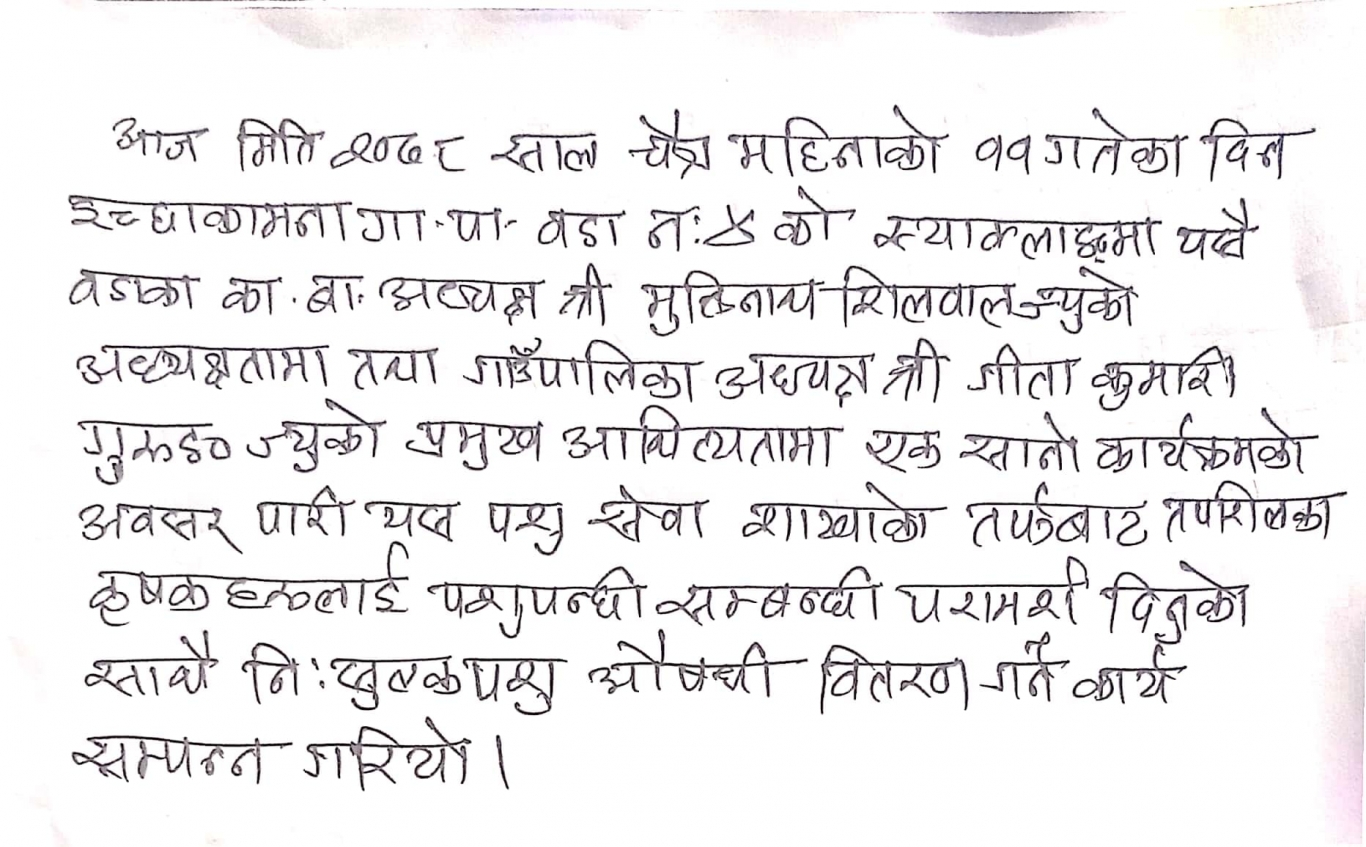 आज मिति २०७८ साल चैत्र महिनाको ११ गतेका दिन
इच्छाकामना गा.पा. वडा नं:५ को स्याकलाङ्गमा यसै
वडाका का.बा. अध्यक्ष श्री मुक्तिनाथ सिलवालज्युको
अध्यक्षतामा तथा गाउँपालिका अध्यक्ष श्री गीता कुमारी
गुरुङ ज्युको प्रमुख आथित्यतामा एक सानो कार्यक्रमको
अवसर पारी यस पशु सेवा शाखाको तर्फबाट तपशिलका
कृषकहरुलाई पशुपन्छी सम्बन्धी परामर्श दिनुको
साथै नि:शुल्क पशु औषधी वितरण गर्ने कार्य
सम्पन्न गरियो ।